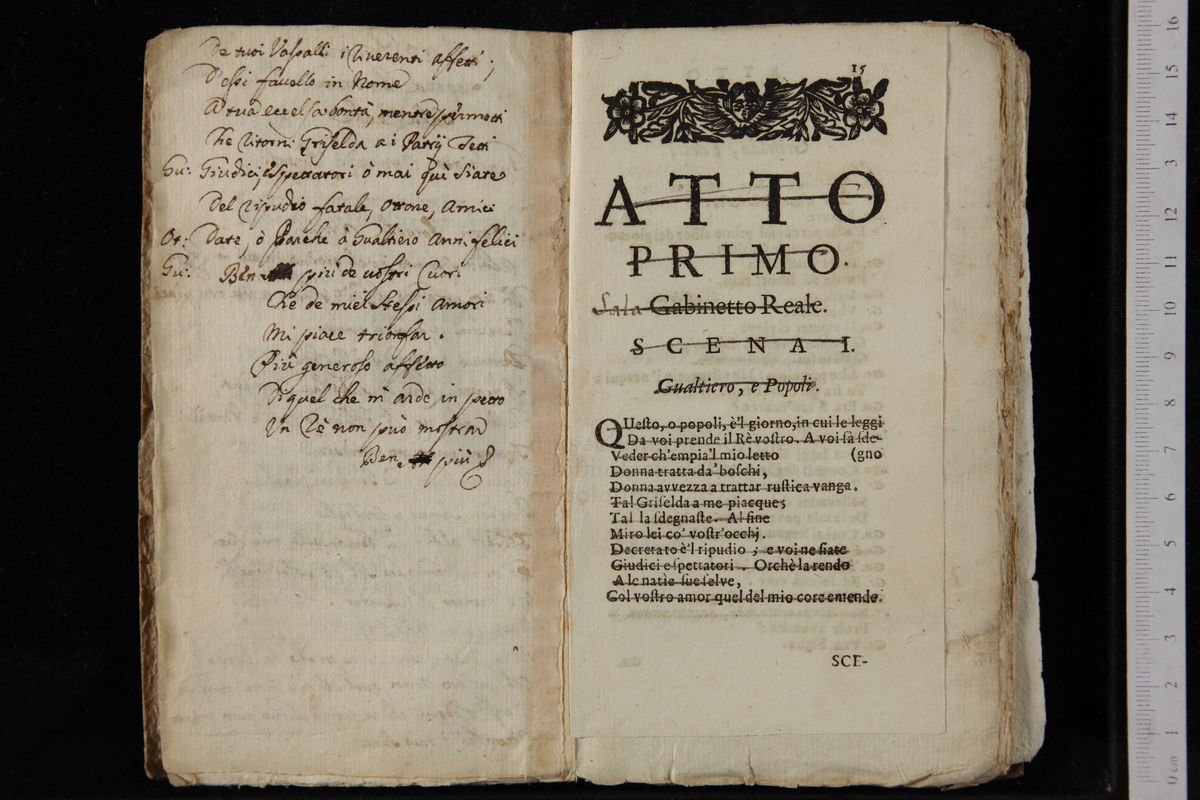 De tuoi Vassalli i riuerenti affetti;
D'essi fauello in Nome
A tua eccelsa bontà, mentre permetti
Che ritorni Griselda a i Patrij Tetti
Gu: Giudici, e Spettatori ò mai quì siate
Del ripudio fatale, Ottone, Amici
Ot: Date, ò Parche à Gualtiero Anni felici
Gu: Ben più de uostri Cuori
Che de miei stessi Amori
Mi piace trionfar.
Più generoso affetto
Di quel che m'arde in petto
Un Rè non può mostrar
Ben più &
15
ATTO
PRIMO.
Sala Gabinetto Reale.
SCENA I.
Gualtiero, e Popoli.
QUesto, o popoli, è'l giorno, in cui le leggi
Da voi prende il Rè vostro. A voi fà sde-
Veder ch'empia'l mio letto (gno
Donna tratta da' boschi,
Donna avvezza a trattar rustica vanga.
Tal Griselda a me piacque;
Tal la sdegnaste. Al fine
Miro lei co' vostr'occhj.
Decretato è'l ripudio; e voi ne siate
Giudici e spettatori. Orchè la rendo
A le natie sue selve,
Col vostro amor quel del mio core emende.
SCE-